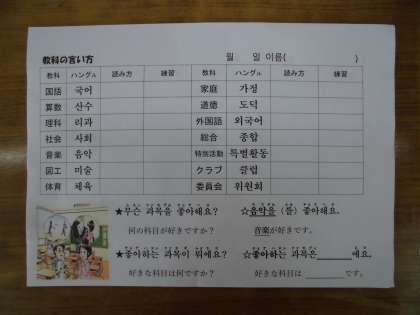 教科の言い方 월 일 이름( )
教科 ハングル 読み方 練習 教科 ハングル 読み方 練習
国語 국어 家庭 가정
算数 산수 道徳 도덕
理科 리과 外国語 외국어
社会 사회 総合 종합
音楽 음악 特別活動 특별활동
図工 미술 クラブ 클럽
体育 체육 委員会 위원회
★무슨 과목을 좋아해요? ☆음악을 (를) 좋아해요.
何の科目が好きですか? 音楽が好きです。
★좋아하는 과목이 뭐에요? ☆좋아하는 과목은______에요.
好きな科目は何ですか? 好きな科目は______です。